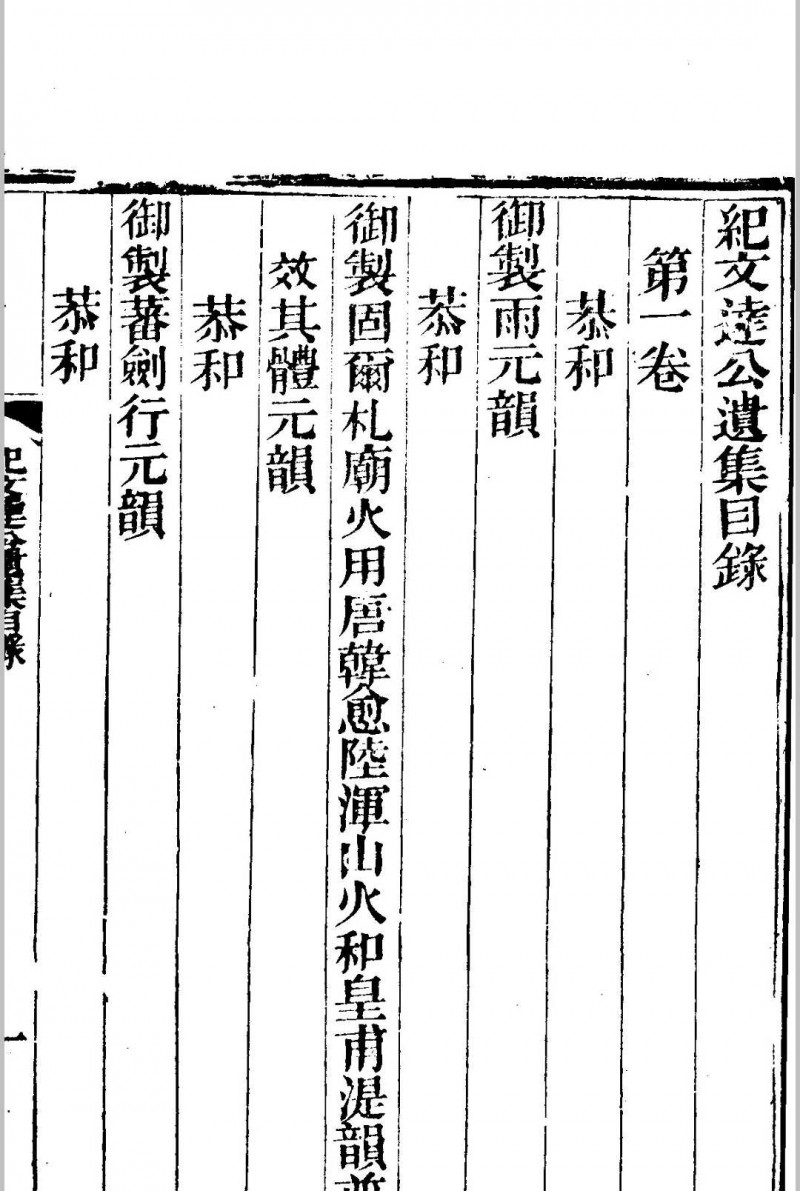 紀文逹公遺集目錄
第一卷
恭和
御製雨元韻
恭和
御製固爾札廟火用唐韓愈陸渾山火和皇甫湜韻
效其體元韻
恭和
御製蕃劍行元韻
恭和
紀文逹公遺集目錄
一